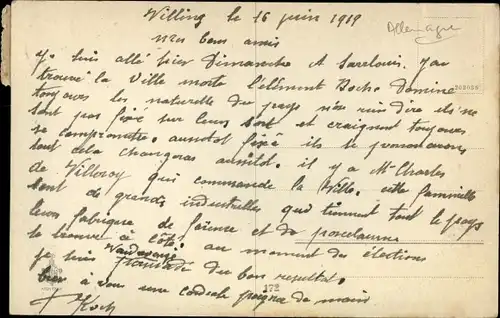 Willing le 16 juin 1919
Allemagne
Mes bons amis
J'y suis allé hier Dimanche A Sarrelouis. J'ai
trouvé la Ville morte l'élément Boche Domine
toujours les naturelle du pays nose rien dire ils ne
sont pas fixé sur leur sort et craignent toujours
se compromettre. aussitot fixé ils se prononceront
tout cela changeras aussitot. il y a Mr Charles
de Villeroy qui commande la Ville. cette famille
sont de grands industrielles qui tiennent tout le pays
leur fabrique de faience et de porcelaines
se trouve à côté au moment des élections
je suis du bon resultat.
bien à vous une cordiale poignée de main
Koch
172